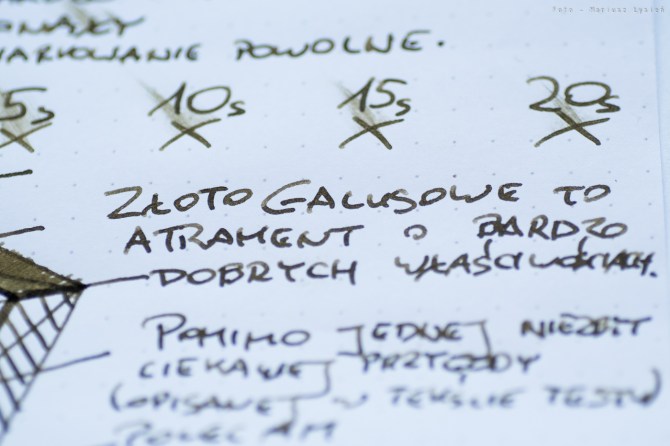 Foto - Mariusz Łysień
POWOLNE.
5s 10s 15s 20s
ZŁOTO GALUSOWE TO
ATRAMENT O BARDZO
DOBRYCH WŁAŚCIWOŚCIACH.
POMIMO JEDNEJ NIEZBYT
CIEKAWEJ PRZYGODY
(OPISANEJ W TEKŚCIE TESTU)
POLECAM